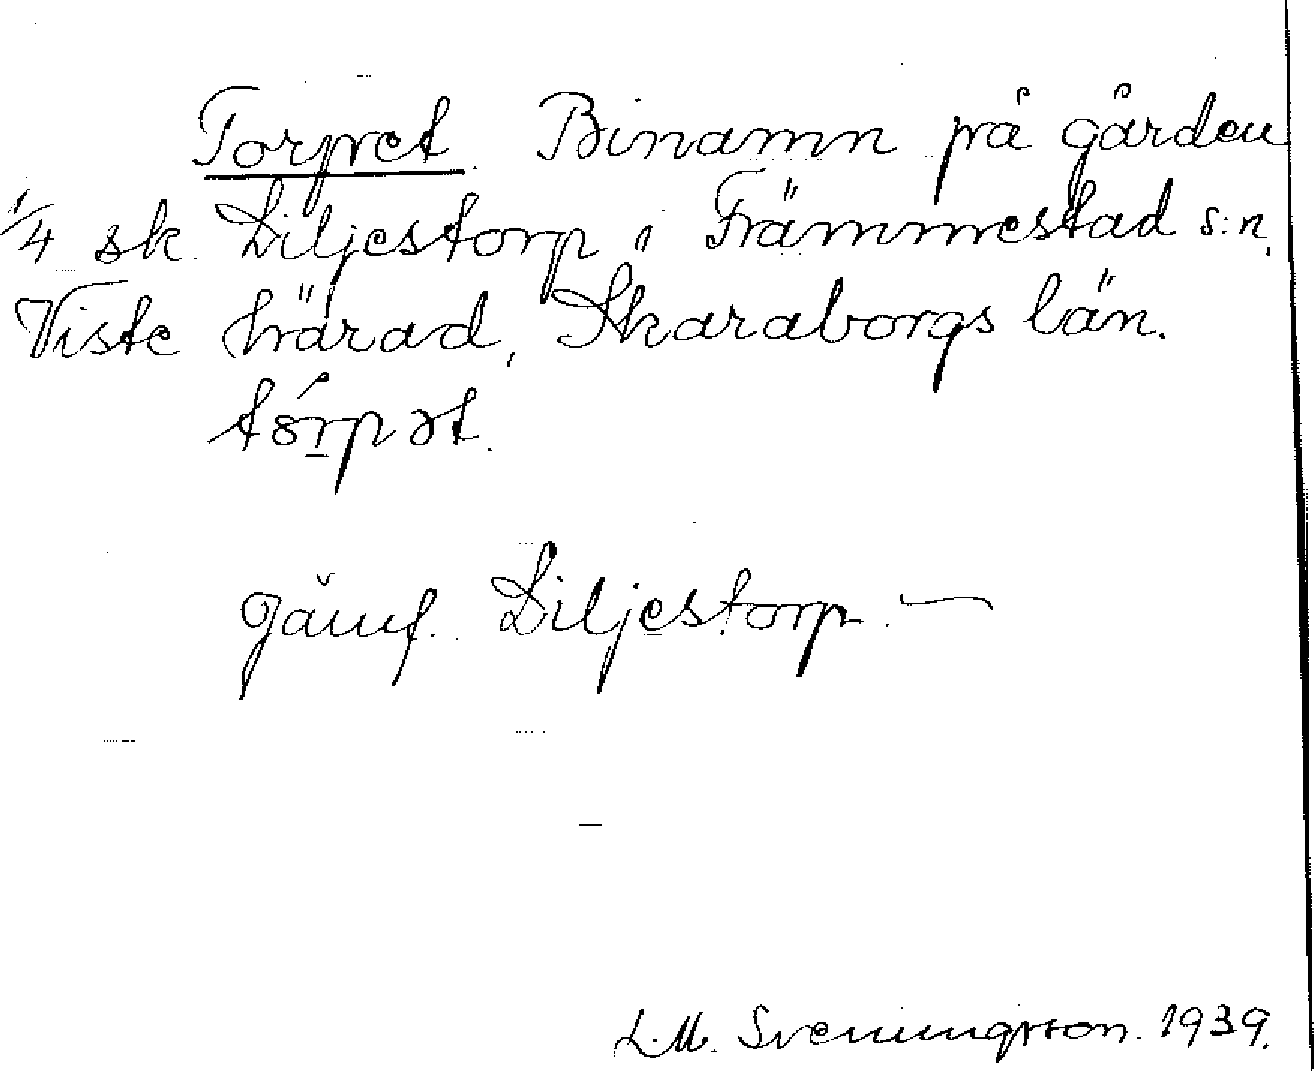 Torpet. Binamn på gården
1/4 sk. Liljestorp i Främmestad s:n,
Viste härad, Skaraborgs län.
Jämf. Liljestorp. —
L.M. Svenungsson. 1939.